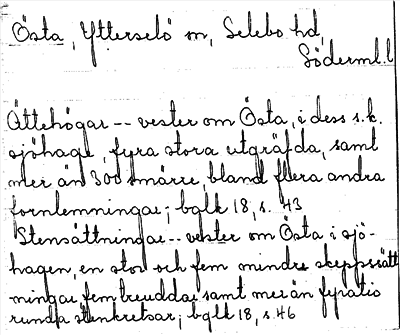 Östa, Ytterselö sn, Selebo hd,
Söderml. l
Ättehögar -- vester om Östa, i dess s.k.
sjöhage, fyra stora utgräfda, samt
mer än 300 smärre, bland flera andra
fornlemningar; bglk 18, s. 43
Stensättningar -- vester om Östa i sjö-
hagen, en stor och fem mindre skeppssätt
ningar, fem breuddar samt mer än fyratio
runda stenkretsar; bglk 18, s. 46